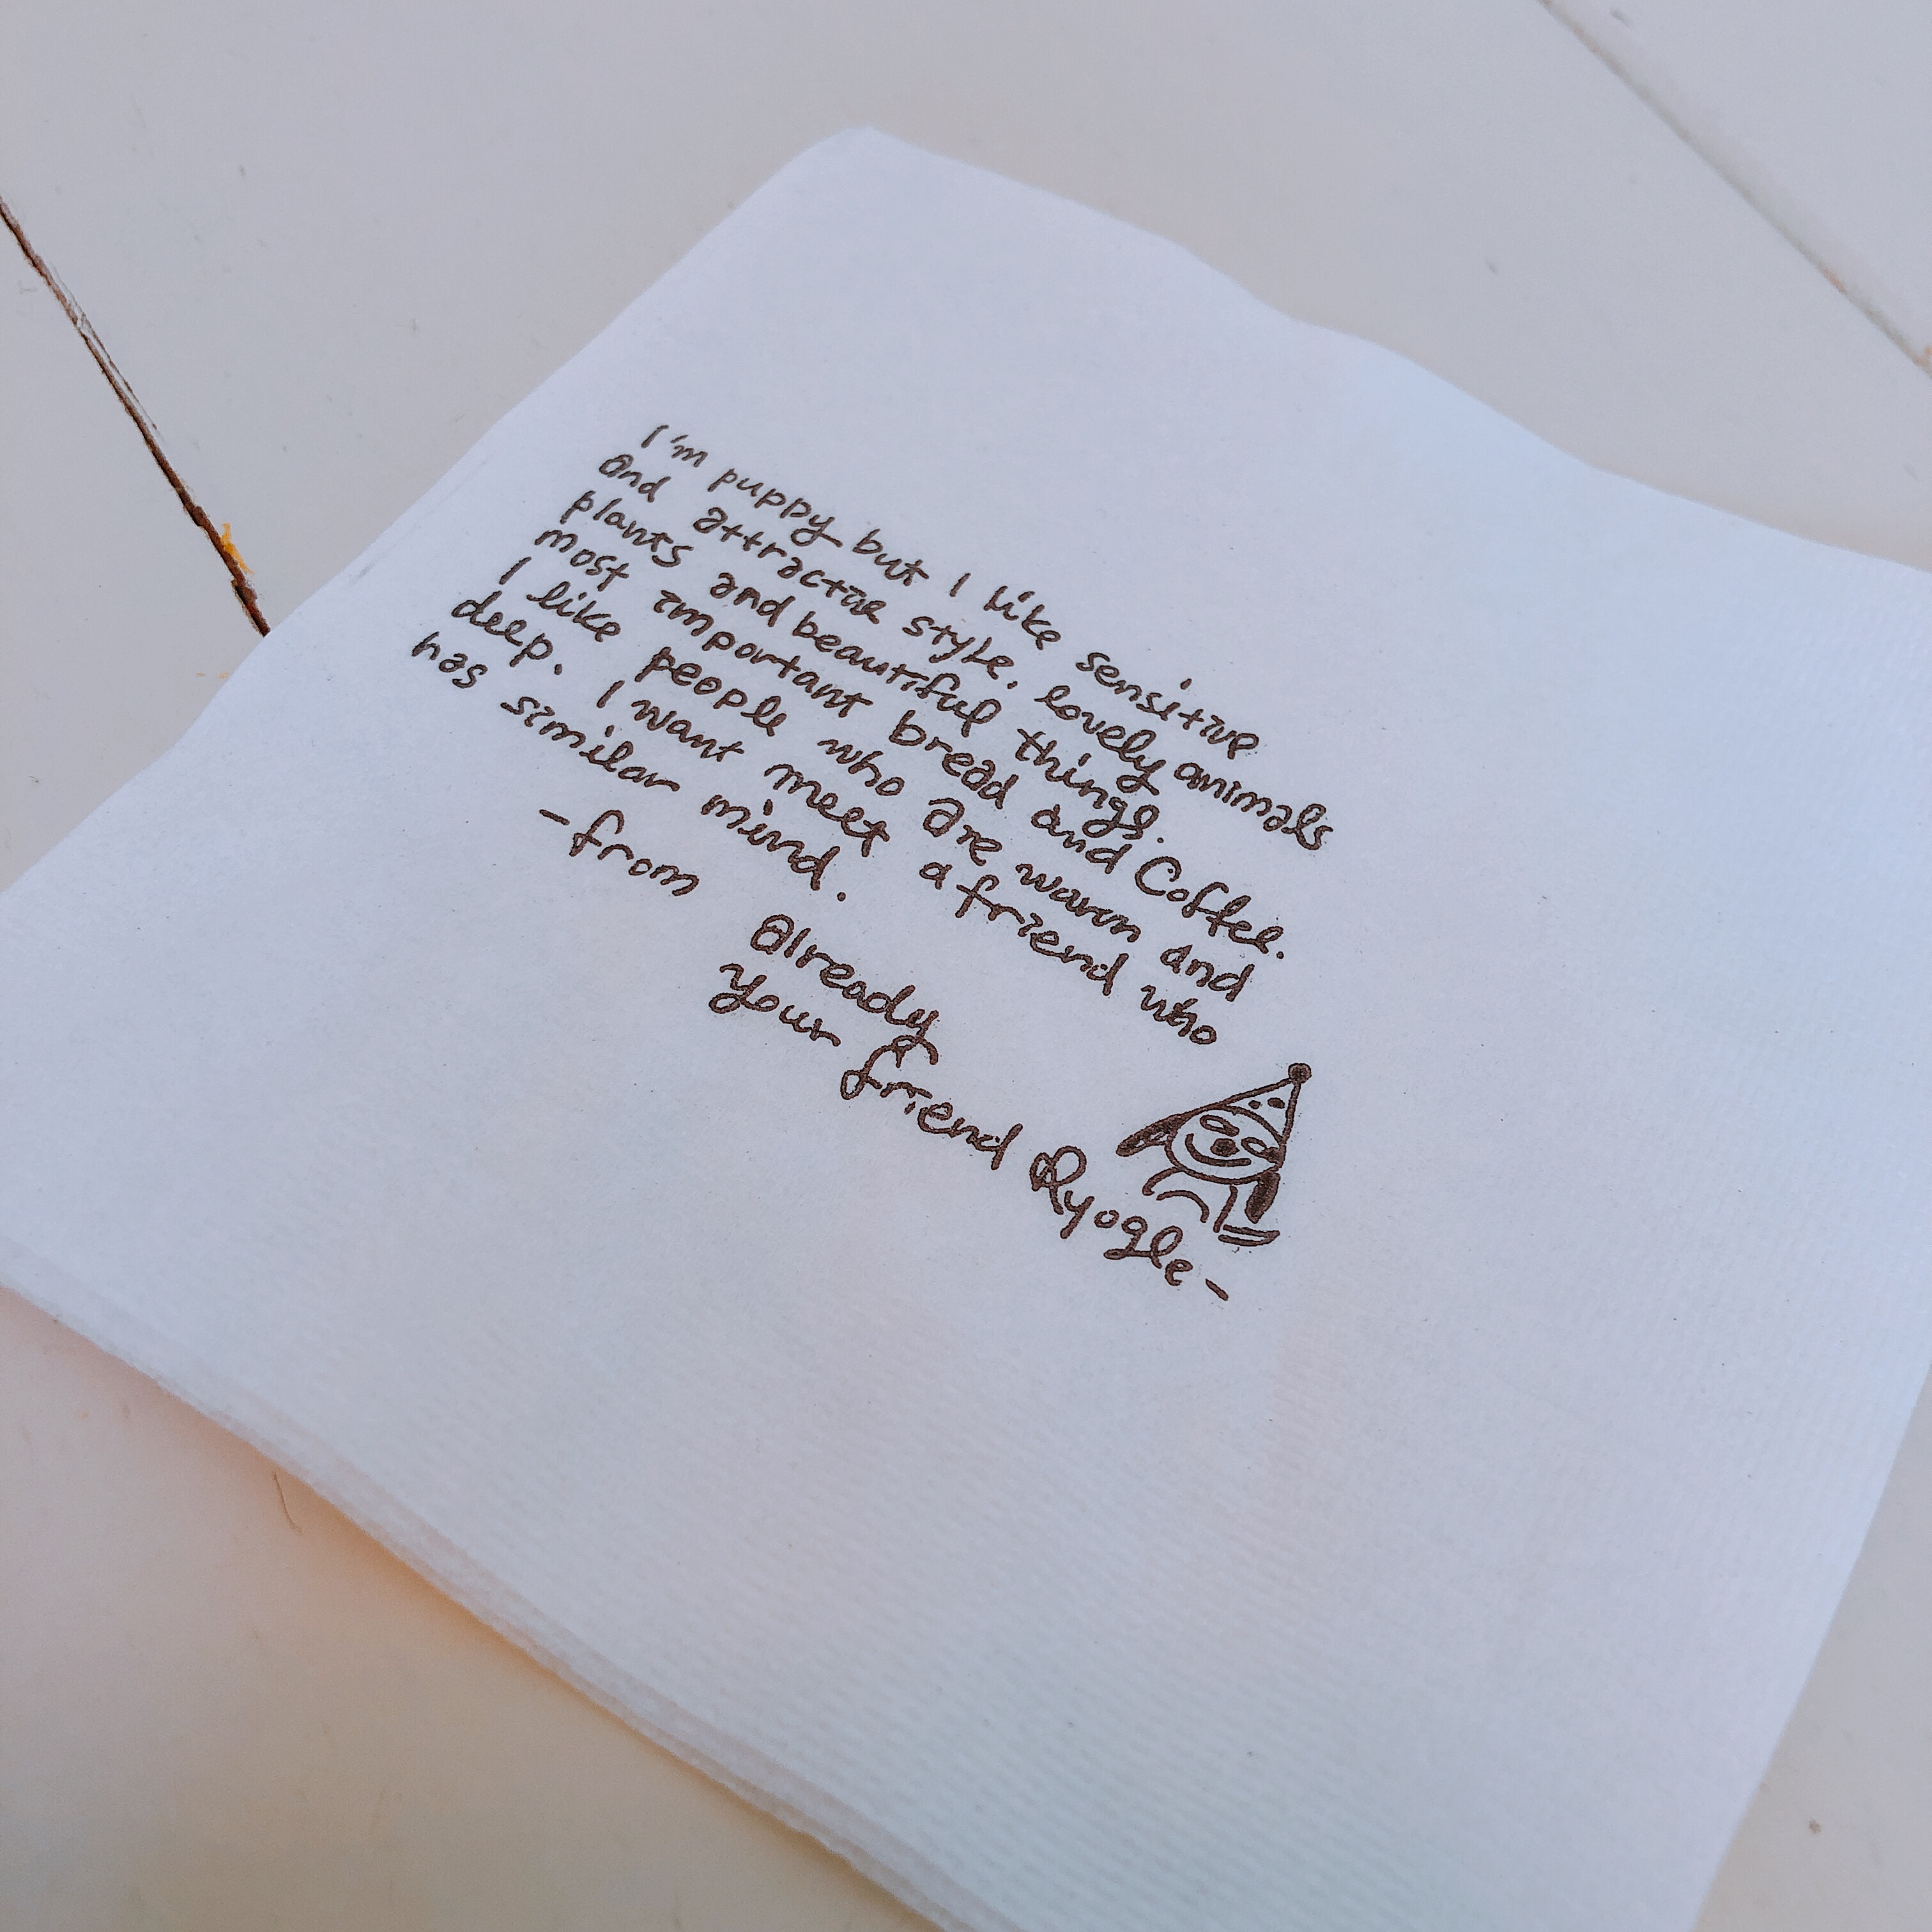 I'm puppy but I like sensitive
and attractive style. lovely animals
plants and beautiful things.
most important bread and Coffee.
I like people who are warm and
deep. I want meet a friend who
has similar mind.
-from already
your friend Ryogle-